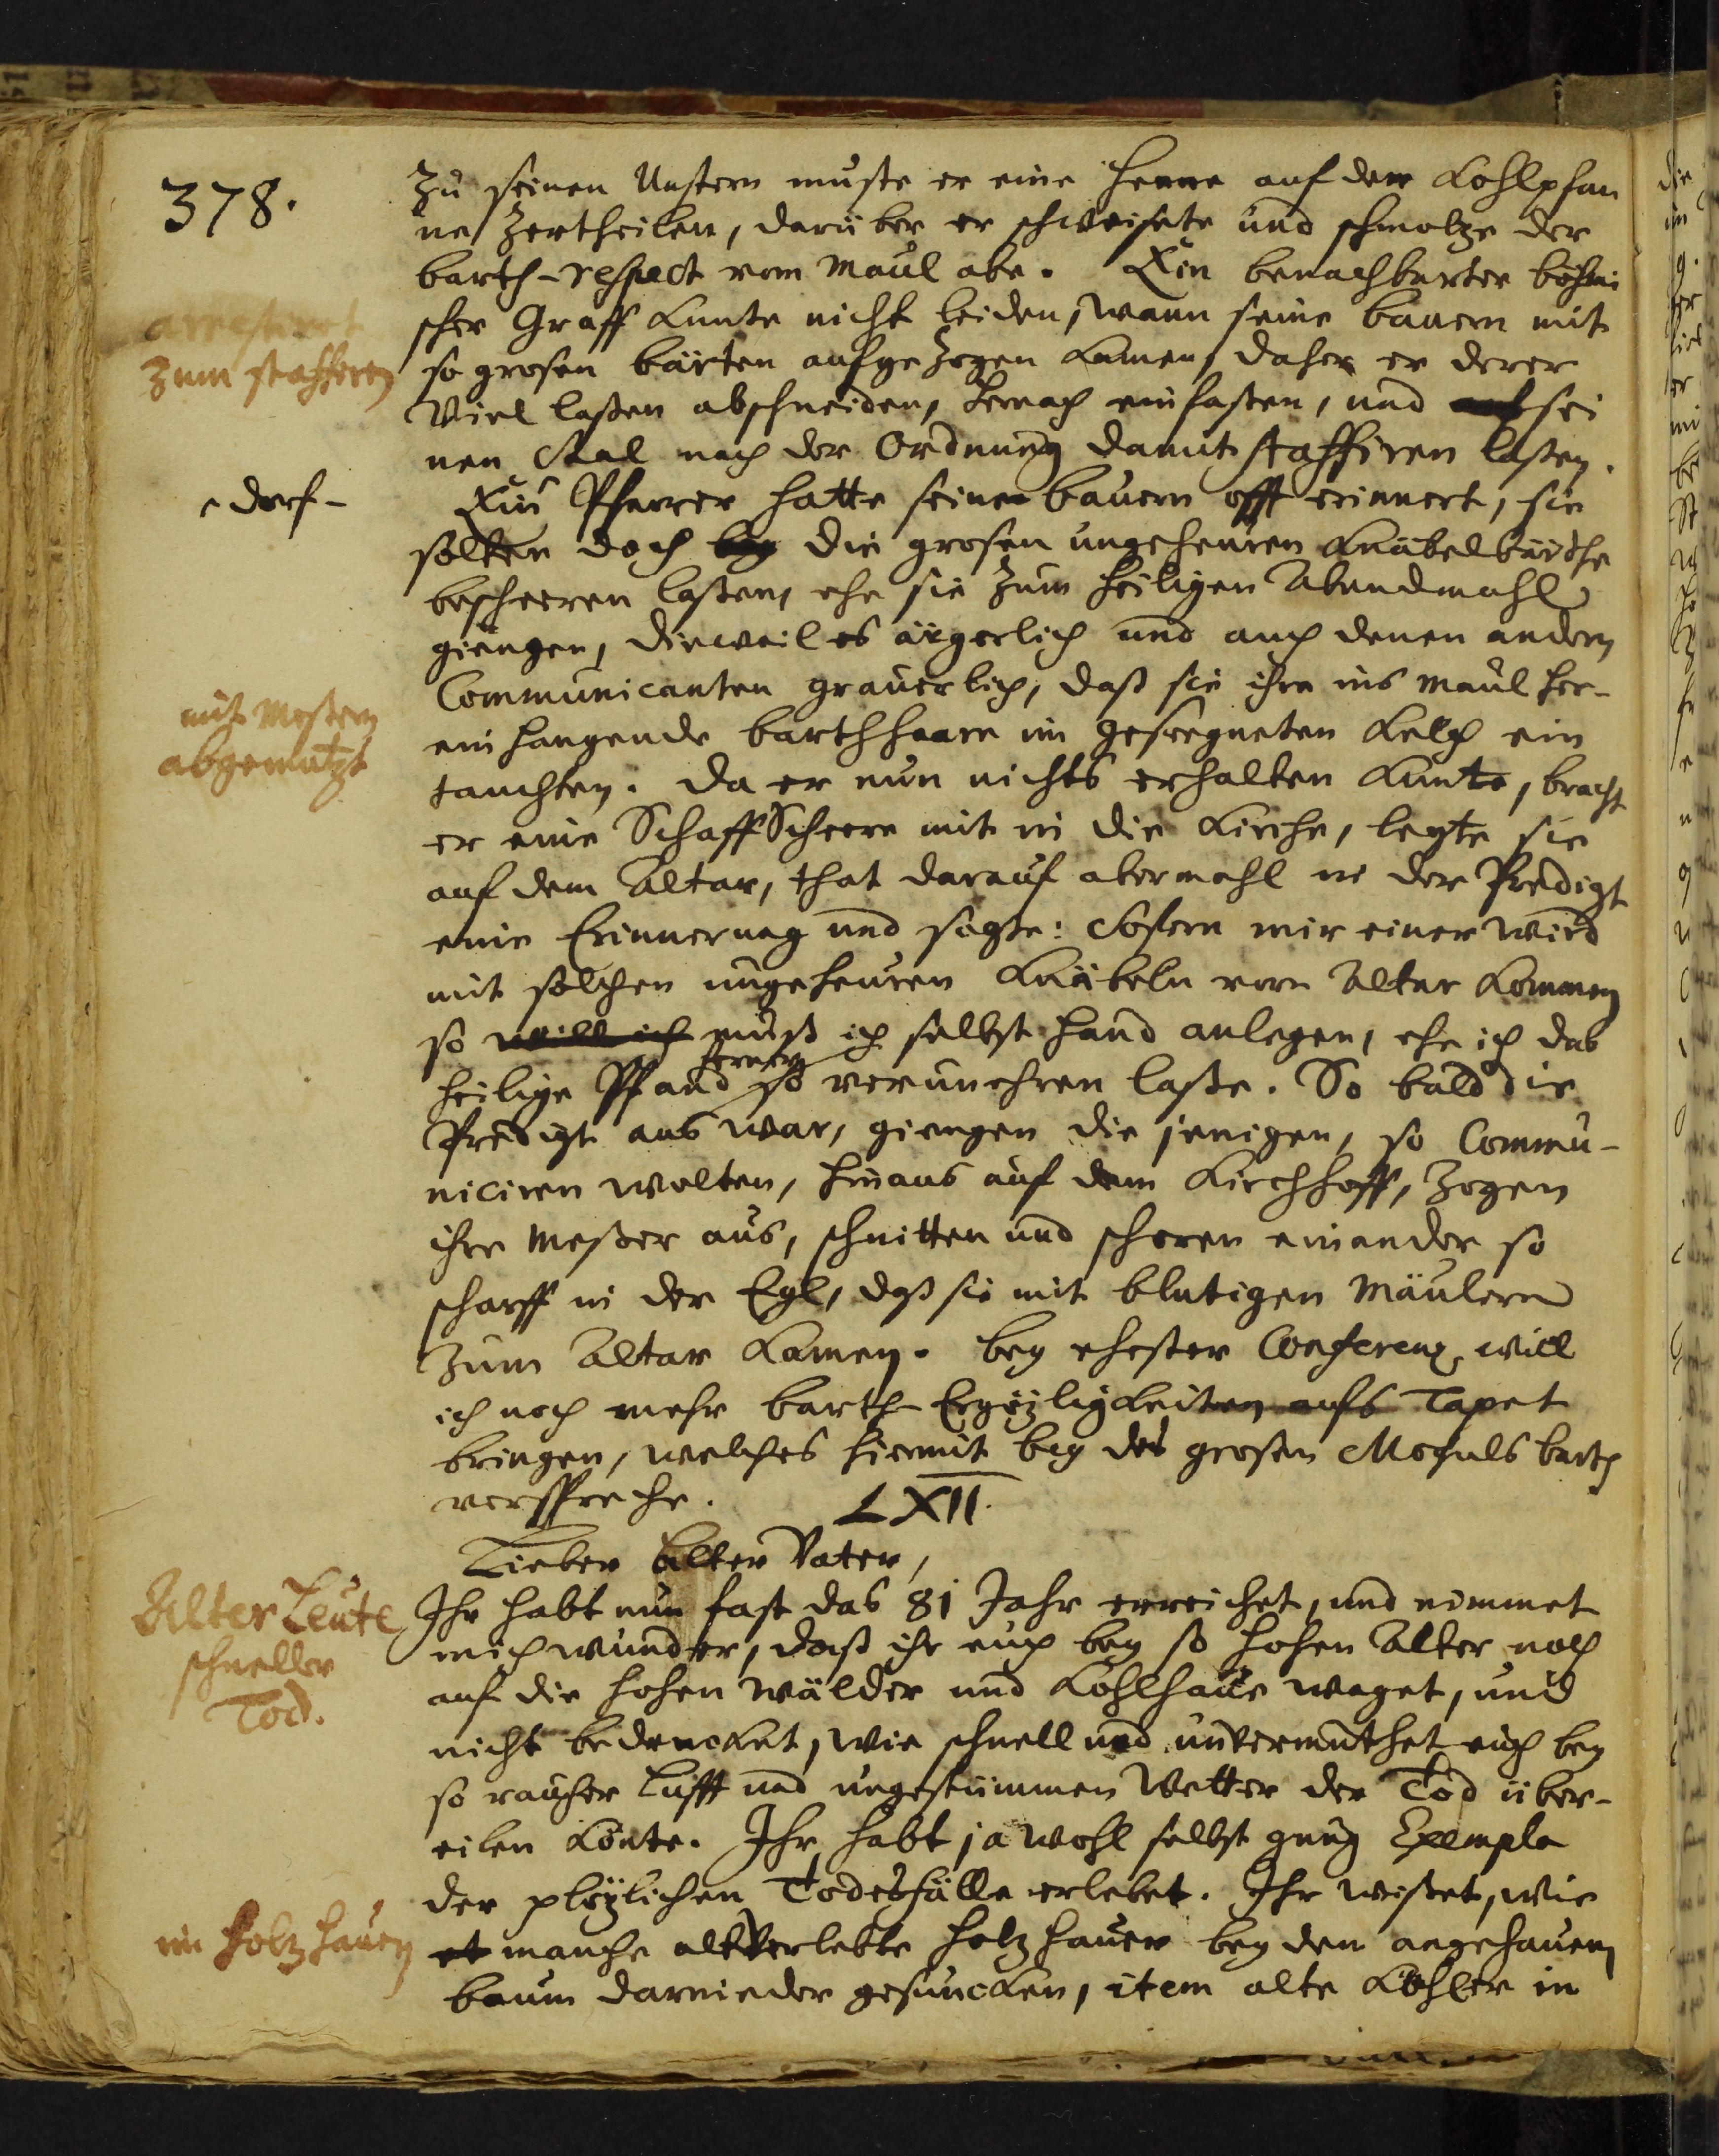 378.
zu seinen Unstern muste er eine Henne auf der Kohlpfan
ne zertheilen, darüber er schweisete und schmolze der
barth-respect vom Maul abe. Ein benachbarter böhmi
scher Graff kunte nicht leiden, wann seine bauern mit
zum staffiren
so grosen bärten aufgezogen kamen, daher er derer
viel laßen abschneiden, hernach einfaßen, und auf sei
nen Saal nach der Ordnung damit staffiren laßen.
dorf-
Ein Pfarrer hatte seine bauern offt erinnert, sie
solten doch die grosen ungeheuren Knäbelbärthe
bescheeren laßen, ehe sie zum heiligen Abendmahl
giengen, dieweil es ärgerlich und auch denen andern
Communicanten grauerlich, daß sie ihre ins Maul her-
mit Meßern
abgemutzt
ein hangende barthhaare im geseegneten Kelch ein
tauchten. Da er nun nichts erhalten kunte, bracht
er eine Schaff Scheere mit in die Kirche, legte sie
auf dem Altar, that darauf abermahl in der Predigt
eine Erinnerung und sagte: Sofern mir einer wird
mit solchen ungeheuren Knäbeln vorn Altar kommen
so will ich muß ich selbst hand anlegen, ehe ich das
ferner
heilige Pfand so verunehren laße. So bald die
Predigt aus war, giengen die jenigen, so Commu-
niciren wolten, hinaus auf dem Kirchhoff, zogen
ihre Meßer aus, schnitten und schoren einander so
scharff in der Eyl, daß sie mit blutigen Mäulern
zum Altar kamen. bey ehester Conferenz will
ich noch mehr barth-Ergözligkeiten aufs Tapet
bringen, welches hiermit bey des grosen Moguls barth
verspreche.
LXII.
Lieber Alter Vater,
Alter Leute
schneller
Tod.
Ihr habt nun fast das 81 Jahr erreichet, und nimmet
mich wunder, daß ihr euch bey so hohen Alter noch
auf die hohen Wälder und Kohlhaue waget, und
nicht bedencket, wie schnell und unvermuthet euch bey
so raucher Lufft und ungestümmen Wetter der Tod über-
eilen könte. Ihr habt ja wohl selbst gnug Exempla
der plözlichen Todesfälle erlebet. Ihr wißet, wie
im Holz hauen
manche alt verlebte Holz hauer bey den angehauen
baum darnieder gesuncken, item alte Köhler in